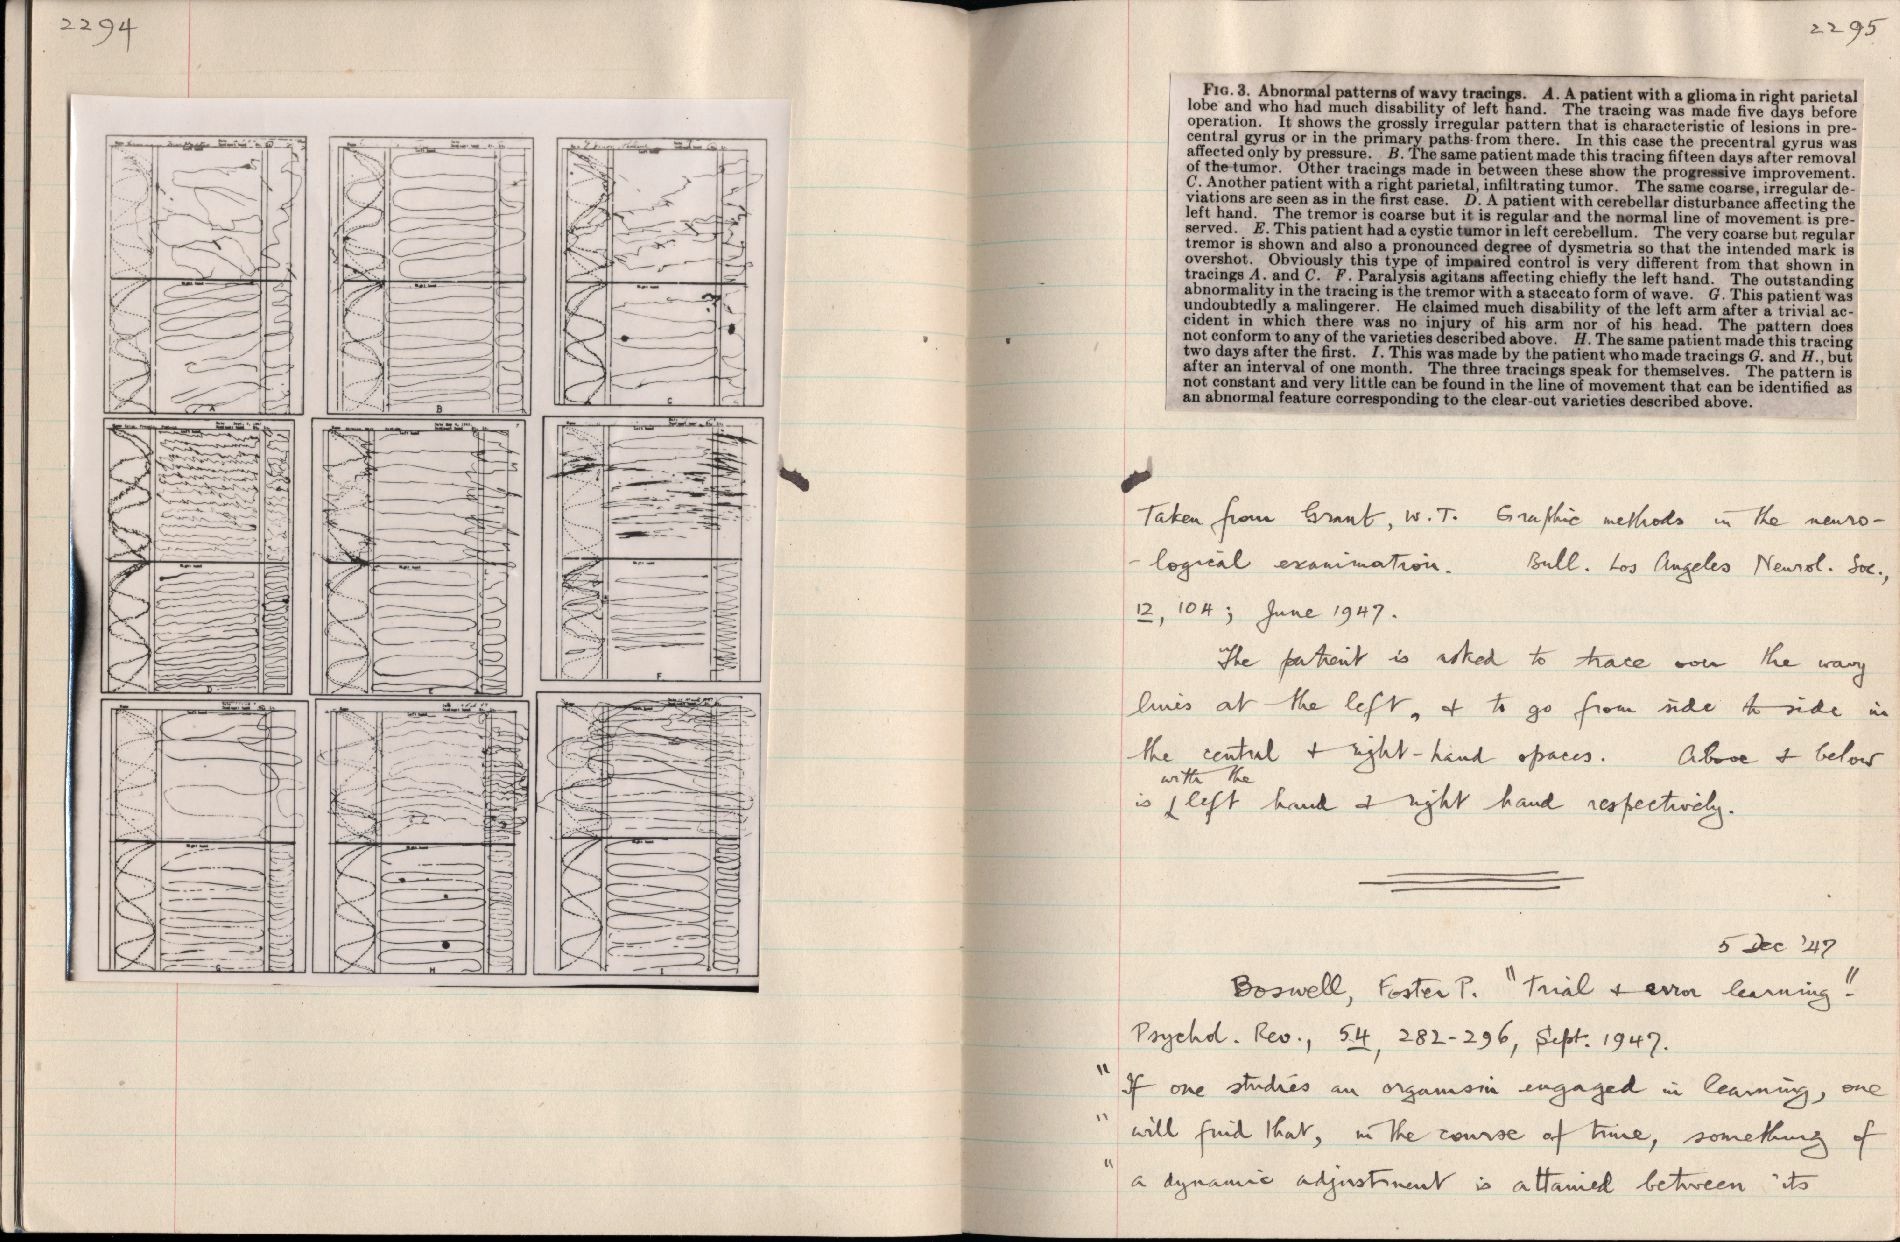 2294
Left hand
Right hand
A
Left hand
Right hand
B
Left hand
Right hand
C
Left hand
Right hand
D
Left hand
Right hand
E
Left hand
Right hand
F
Left hand
Right hand
G
Left hand
Right hand
H
Right hand
I
2295
FIG. 3. Abnormal patterns of wavy tracings. A. A patient with a glioma in right parietal
lobe and who had much disability of left hand. The tracing was made five days before
operation. It shows the grossly irregular pattern that is characteristic of lesions in pre-
central gyrus or in the primary paths from there. In this case the precentral gyrus was
affected only by pressure. B. The same patient made this tracing fifteen days after removal
of the tumor. Other tracings made in between these show the progressive improvement.
C. Another patient with a right parietal, infiltrating tumor. The same coarse, irregular de-
viations are seen as in the first case. D. A patient with cerebellar disturbance affecting the
left hand. The tremor is coarse but it is regular and the normal line of movement is pre-
served. E. This patient had a cystic tumor in left cerebellum. The very coarse but regular
tremor is shown and also a pronounced degree of dysmetria so that the intended mark is
overshot. Obviously this type of impaired control is very different from that shown in
tracings A. and C. F. Paralysis agitans affecting chiefly the left hand. The outstanding
abnormality in the tracing is the tremor with a staccato form of wave. G. This patient was
undoubtedly a malingerer. He claimed much disability of the left arm after a trivial ac-
cident in which there was no injury of his arm nor of his head. The pattern does
not conform to any of the varieties described above. H. The same patient made this tracing
two days after the first. I. This was made by the patient who made tracings G. and H., but
after an interval of one month. The three tracings speak for themselves. The pattern is
not constant and very little can be found in the line of movement that can be identified as
an abnormal feature corresponding to the clear-cut varieties described above.
Taken from Grant, W.T. Graphic methods in the neuro-
-logical examination. Bull. Los Angeles Neurol. Soc.,
12, 104; June 1947.
The patient is asked to trace over the wavy
lines at the left, & to go from side to side in
the central & right-hand spaces. Above & below
with the
is left hand & right hand respectively.
5 Dec '47
Boswell, Foster P. "Trial & error learning".
Psychol. Rev., 54, 282-296, Sept. 1947.
"If one studies an organism engaged in learning, one
"will find that, in the course of time, something of
"a dynamic adjustment is attained between its